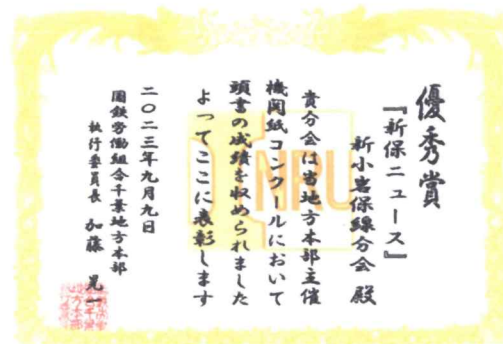 優秀賞
『新保ニュース』
新小岩保線分会 殿
貴分会は当地方本部主催
機関紙コンクールにおいて
頭書の成績を収められました
よってここに表彰します
二〇二三年九月九日
国鉄労働組合千葉地方本部
執行委員長 加藤 晃一
NRU